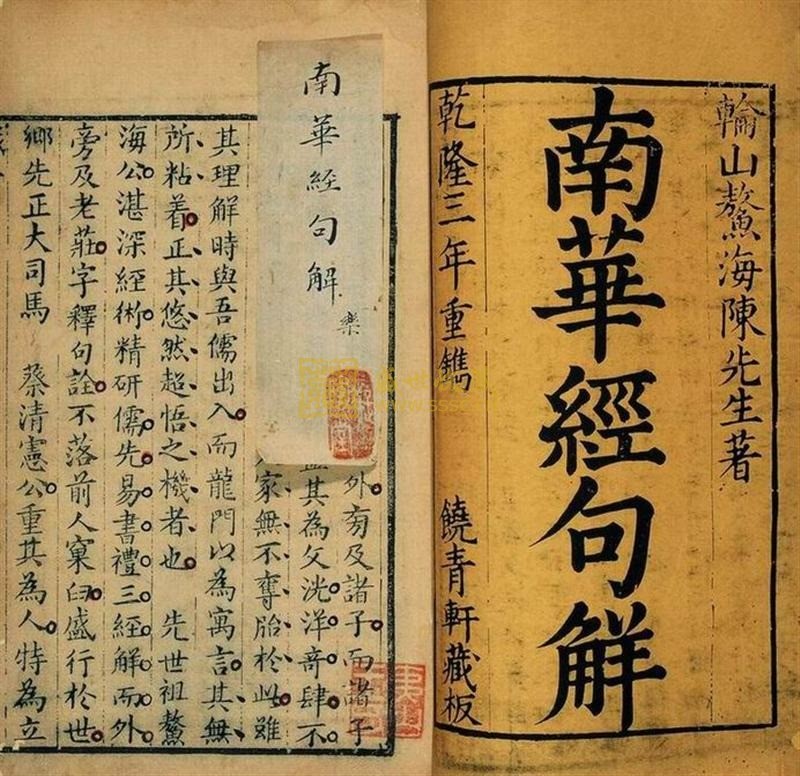 輪山鰲海陳先生著
南華經句解
乾隆三年重鐫 饒青軒藏板
南華经句解
樂
外旁及諸子而諸子
其為文洸洋奇肆不
家無不奪胎於此雖
其理解時與吾儒出入而龍門以為寓言其無
所粘着正其悠然超悟之機者也 先世祖鰲
海公湛深經術精研儒先易書禮三經解而外
旁及老莊字釋句詮不落前人窠臼盛行於世
鄉先正大司馬 蔡清憲公重其為人特為立